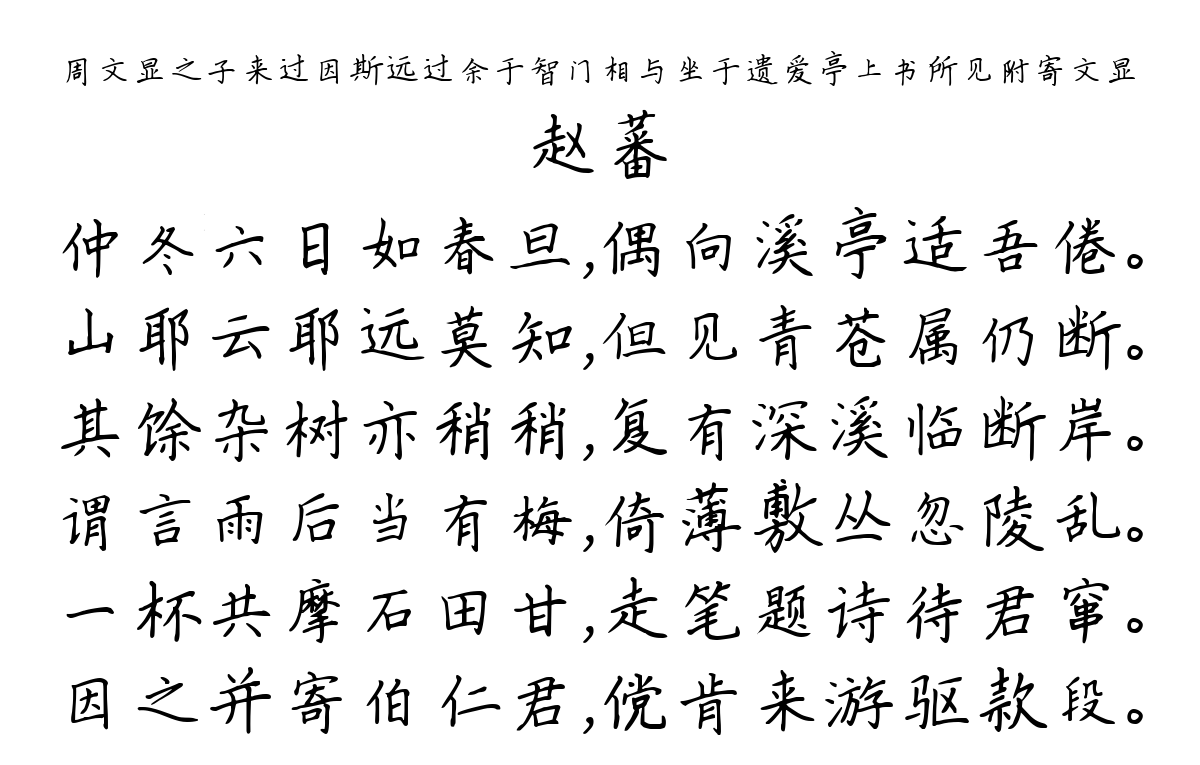 周文显之子来过因斯远过余于智门相与坐于遗爱亭上书所见附寄文显
赵蕃
仲冬六日如春旦,偶向溪亭适吾倦。
山耶云耶远莫知,但见青苍属仍断。
其馀杂树亦稍稍,复有深溪临断岸。
谓言雨后当有梅,倚薄敷丛忽陵乱。
一杯共摩石田甘,走笔题诗待君窜。
因之并寄伯仁君,傥肯来游驱款段。